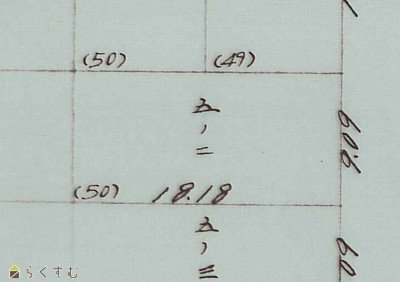 (50)
(49)
五
,
二
9.09
(50)
18.18
五
,
三
らくすむ